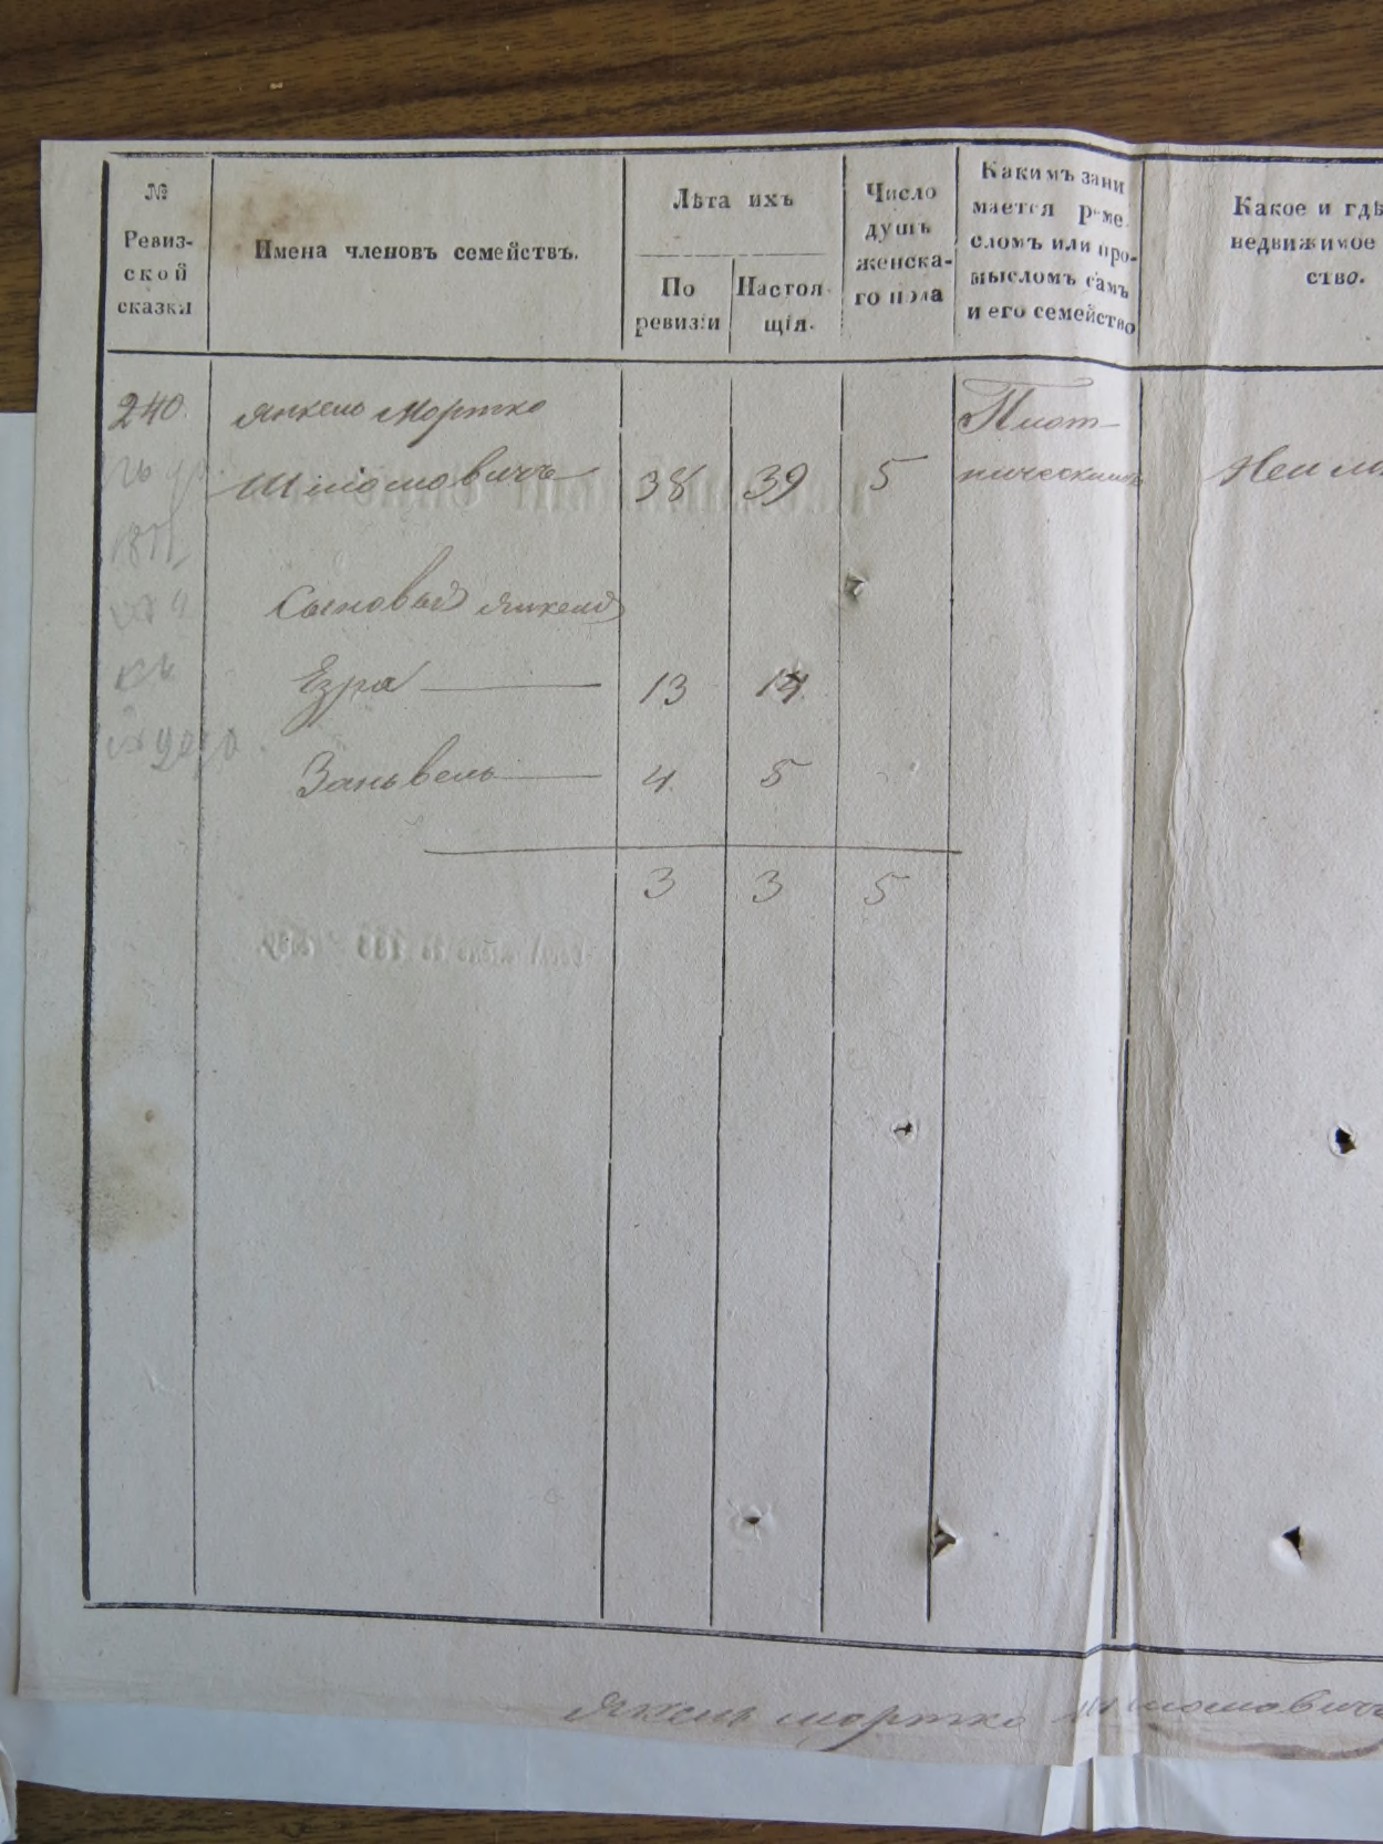 №
Ревиз-
ской
сказки
Имена членовъ семействъ.
Лѣта ихъ
По
ревизіи
Настоя-
щія.
Число
душъ
женска-
го пола
Какимъ зани
мается реме
сломъ или про-
мысломъ самъ
и его семейство
Какое и гдѣ
недвижимое
ство.
240. Янкель Мортко Плот-
Шліомовичъ 38 39 5 ническимъ
Сыновья Янкеля
Езра 13 14
Заньвель 4 5
3 3 5
Янкель Мортко Шліомовичъ